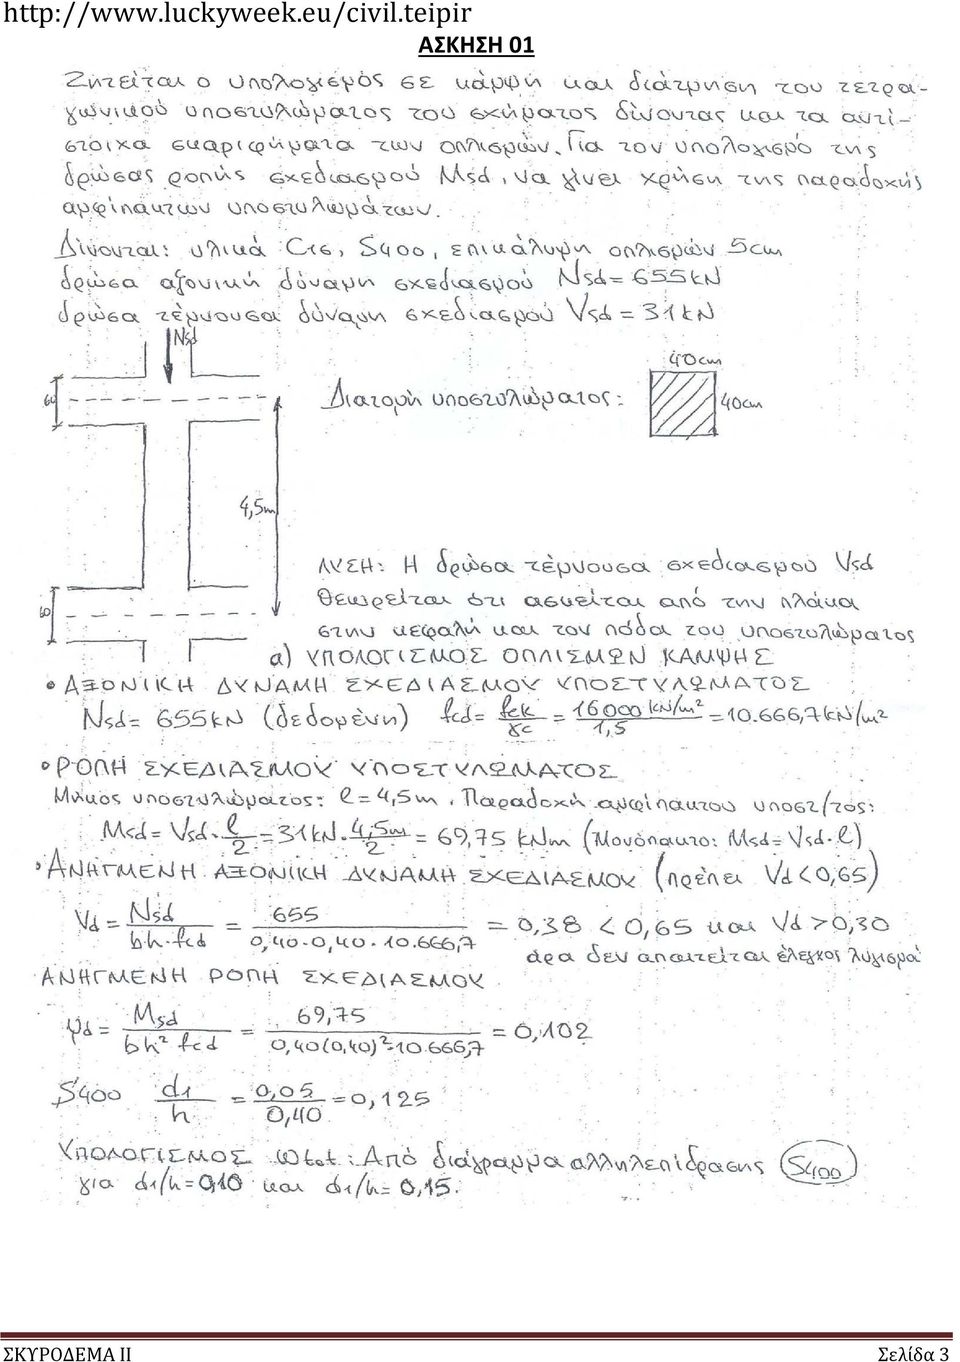 http://www.luckyweek.eu/civil.teipir
ΑΣΚΗΣΗ 01
Ζητείται ο υπολογισμός σε κάμψη και διάτρηση του τετρα-
γωνικού υποστυλώματος του σχήματος δίνοντας και τα αντί-
στοιχα σκαριφήματα των οπλισμών. Για τον υπολογισμό της
δρώσας ροπής σχεδιασμού Msd, να γίνει χρήση της παραδοχής
αμφίπακτων υποστυλωμάτων.
Δίνονται: υλικά C16, S400, επικάλυψη οπλισμών 5cm
δρώσα αξονική δύναμη σχεδιασμού Nsd= 655kN
δρώσα τέμνουσα δύναμη σχεδιασμού Vsd = 31kN
Nsd
40cm
60
Διατομή υποστυλώματος:
40cm
4,5m
ΛΥΣΗ: Η δρώσα τέμνουσα σχεδιασμού Vsd
θεωρείται ότι ασκείται από την πλάκα
60
στην κεφαλή και τον πόδα του υποστυλώματος
α) ΥΠΟΛΟΓΙΣΜΟΣ ΟΠΛΙΣΜΩΝ ΚΑΜΨΗΣ
• ΑΞΟΝΙΚΗ ΔΥΝΑΜΗ ΣΧΕΔΙΑΣΜΟΥ ΥΠΟΣΤΥΛΩΜΑΤΟΣ
Nsd= 655kN (δεδομένη) fcd= fck/γc = 16000 kN/m²/1,5 = 10.666,7kN/m²
• ΡΟΠΗ ΣΧΕΔΙΑΣΜΟΥ ΥΠΟΣΤΥΛΩΜΑΤΟΣ
Μήκος υποστυλώματος: l=4,5m. Παραδοχή αμφίπακτου υποστ/τος:
Msd= Vsd·l/2=31kN·4,5m/2= 69,75 kNm (Μονόπακτο: Msd= Vsd·l)
• ΑΝΗΓΜΕΝΗ ΑΞΟΝΙΚΗ ΔΥΝΑΜΗ ΣΧΕΔΙΑΣΜΟΥ (πρέπει Vd<0,65)
Vd = Nsd/b·h·fcd = 655/0,40·0,40·10.666,7 = 0,38 < 0,65 και Vd >0,30
άρα δεν απαιτείται έλεγχος λυγισμού
ΑΝΗΓΜΕΝΗ ΡΟΠΗ ΣΧΕΔΙΑΣΜΟΥ
μd = Msd/bh² fcd = 69,75/0,40(0,40)²·10.666,7 = 0,102
S400 d1/h = 0,05/0,40 =0,125
ΥΠΟΛΟΓΙΣΜΟΣ ωtot: Από διάγραμμα αλληλεπίδρασης S400
για d1/h=0,10 και d1/h= 0,15.
ΣΚΥΡΟΔΕΜΑ ΙΙ Σελίδα 3